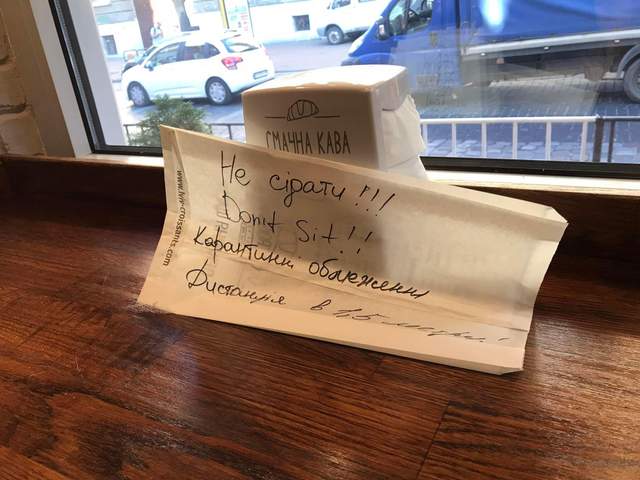 СМАЧНА КАВА
Не сідати!!!
Don't Sit!!
Карантинні обмеження
Дистанція в 1,5 метри!
www.lviv-croissants.com